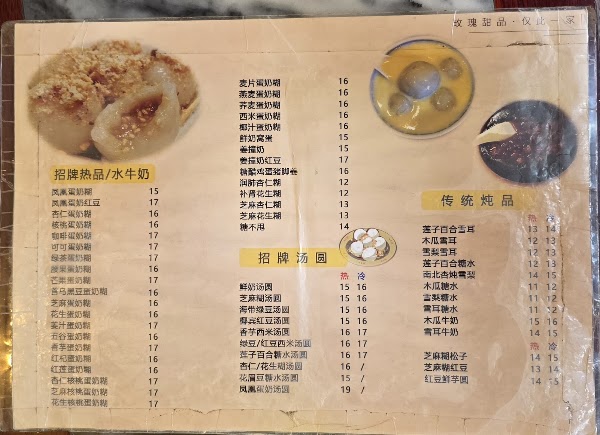 玫瑰甜品·仅此一家
招牌热品/水牛奶
凤凰蛋奶糊 15
凤凰蛋奶红豆 17
杏仁蛋奶糊 17
核桃蛋奶糊 17
咖啡蛋奶糊 17
可可蛋奶糊 17
绿茶蛋奶糊 17
腰果蛋奶糊 16
芒果蛋奶糊 17
喜马黑豆蛋奶糊 16
芝麻蛋奶糊 17
花生蛋奶糊 17
姜汁蛋奶糊 17
五谷蛋奶糊 17
香芋蛋奶糊 17
红杞蛋奶糊 17
红莲蛋奶糊 17
杏仁核桃蛋奶糊 17
芝麻核桃蛋奶糊 17
花生核桃蛋奶糊 17
麦片蛋奶糊 16
燕麦蛋奶糊 16
荞麦蛋奶糊 16
西米蛋奶糊 16
椰汁蛋奶糊 16
鲜奶窝蛋 15
姜撞奶 15
姜撞奶红豆 17
糖醋鸡蛋猪脚姜 16
润肺杏仁糊 12
补肾花生糊 12
芝麻杏仁糊 13
芝麻花生糊 13
糖不甩 14
招牌汤圆
热 冷
鲜奶汤圆 15 16
芝麻糊汤圆 15 16
海带绿豆汤圆 15 16
椰宾红豆汤圆 15 16
香芋西米汤圆 16 17
绿豆/红豆西米汤圆 16 17
莲子百合糖水汤圆 16 17
杏仁/花生糊汤圆 16 /
花眉豆糖水汤圆 15 /
凤凰蛋奶汤圆 19 /
传统炖品
热 冷
莲子百合雪耳 13 14
木瓜雪耳 12 13
雪梨雪耳 12 13
莲子百合糖水 12 13
南北杏炖雪梨 14 15
木瓜糖水 11 12
雪梨糖水 11 12
雪耳糖水 11 12
木瓜牛奶 15 16
雪耳牛奶 14 15
热 冷
芝麻糊松子 14 15
芝麻糊红豆 13 14
红豆鲜芋圆 14 15